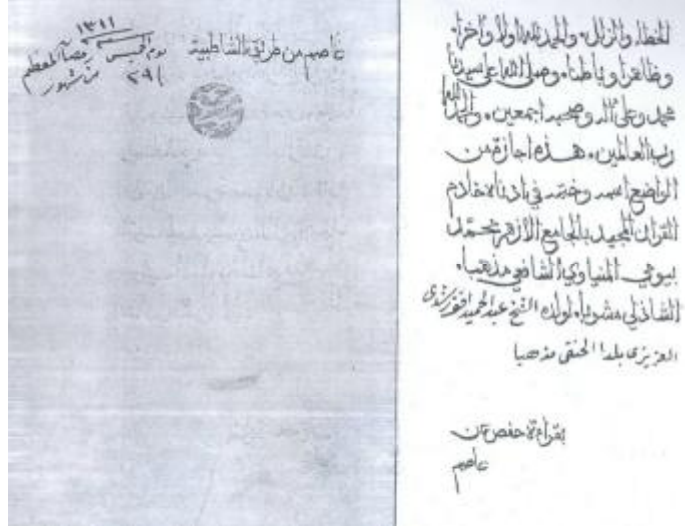 لخطا. والزلل. والحمد لله اولا واخرا.
وظاهرا وباطنا. وصلى الله على سيدنا
محمد وعلى آله وصحبه اجمعين. والحمد لله
رب العالمين. هذه اجازة من
الواضع اسمه وختمه في ادناه خادم
القران المجيد بالجامع الأزهر محمد
بيومي المنياوي الشافعي مذهبا.
الشاذلي مشربا. لولده الشيخ عبد الحميد افندي رشدي
العزيزى بلدا الحنفى مذهبا
بقراءة حفص عن
عاصم
عاصم من طريق الشاطبية
١٣١١
يوم الخميس
٢٩ من شهور